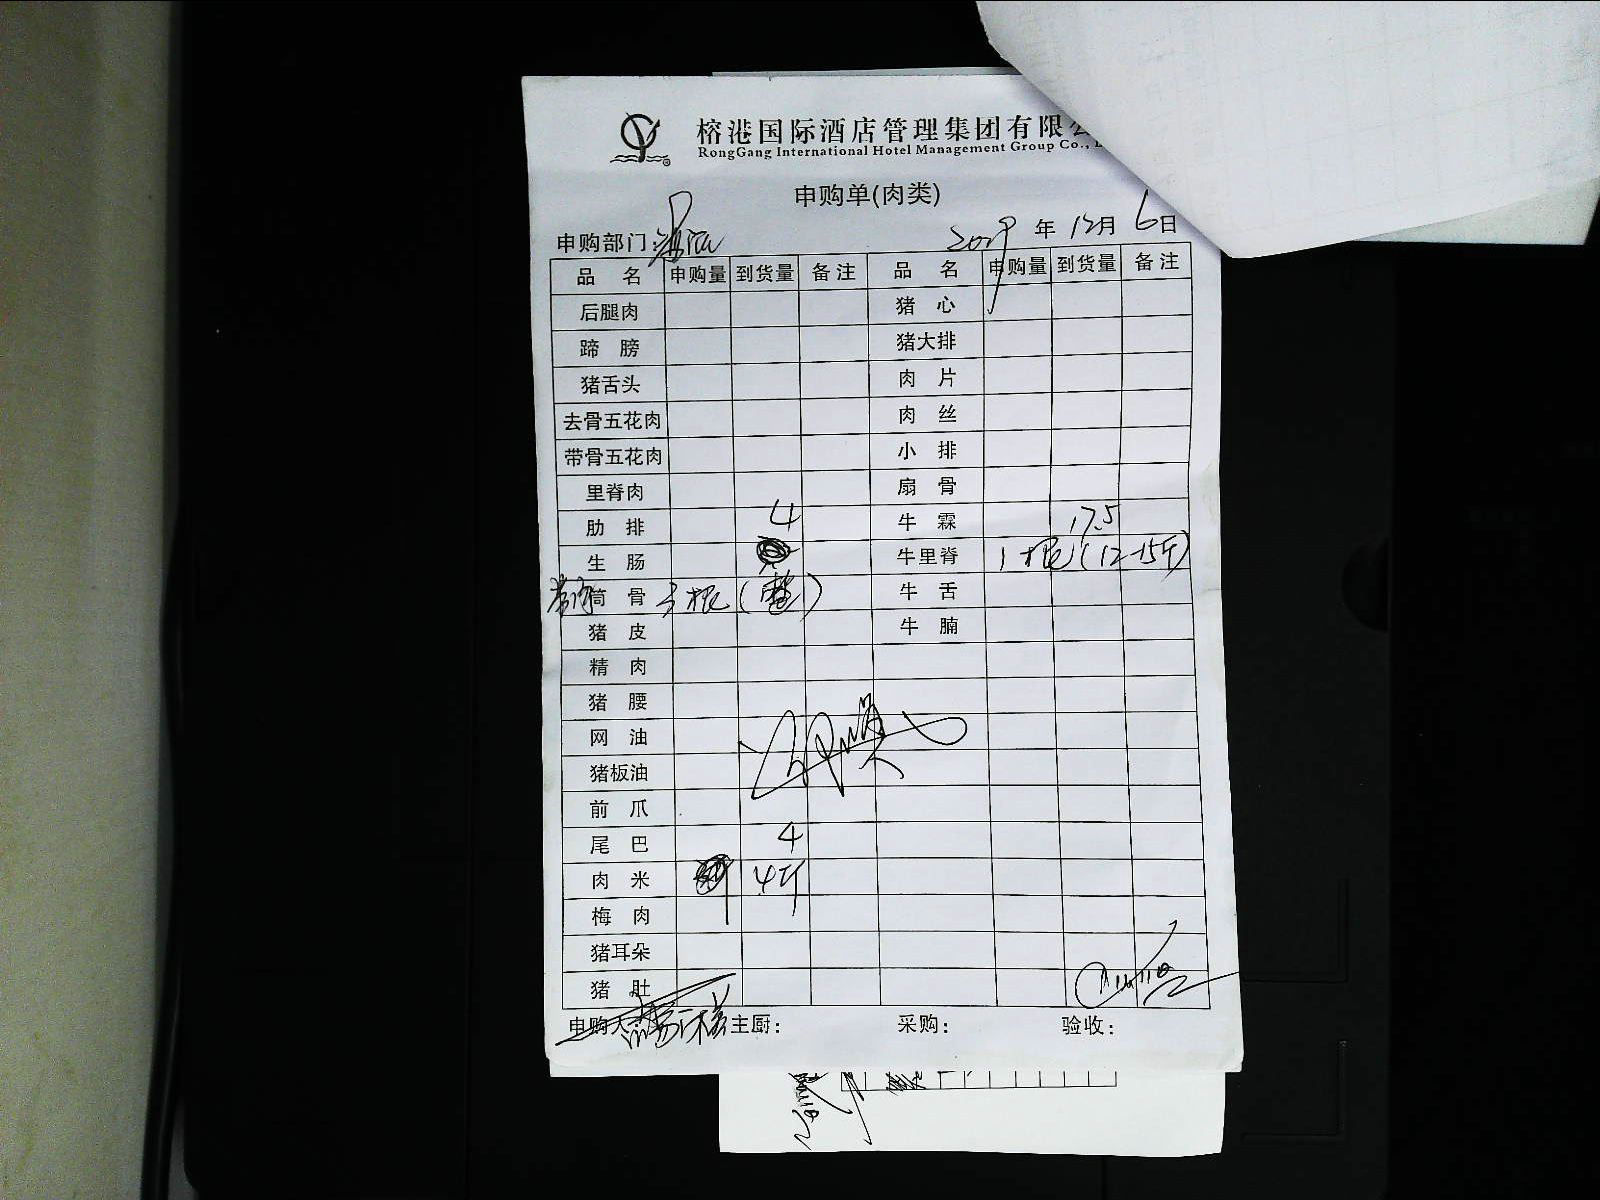 榕港国际酒店管理集团有限
RongGang International Hotel Management Group Co.,
申购单(肉类)
申购部门: 年 12月 6日
品 名 申购量 到货量 备注 品 名 申购量 到货量 备注
后腿肉 猪 心
蹄 膀 猪大排
猪舌头 肉 片
去骨五花肉 肉 丝
带骨五花肉 小 排
里脊肉 扇 骨
肋 排 4 牛 霖 17.5
生 肠 牛里脊 1根(12-15斤)
筒 骨 根( ) 牛 舌
猪 皮 牛 腩
精 肉
猪 腰
网 油
猪板油
前 爪
尾 巴 4
肉 米 4斤
梅 肉
猪耳朵
猪 肚
申购人: 主厨: 采购: 验收: